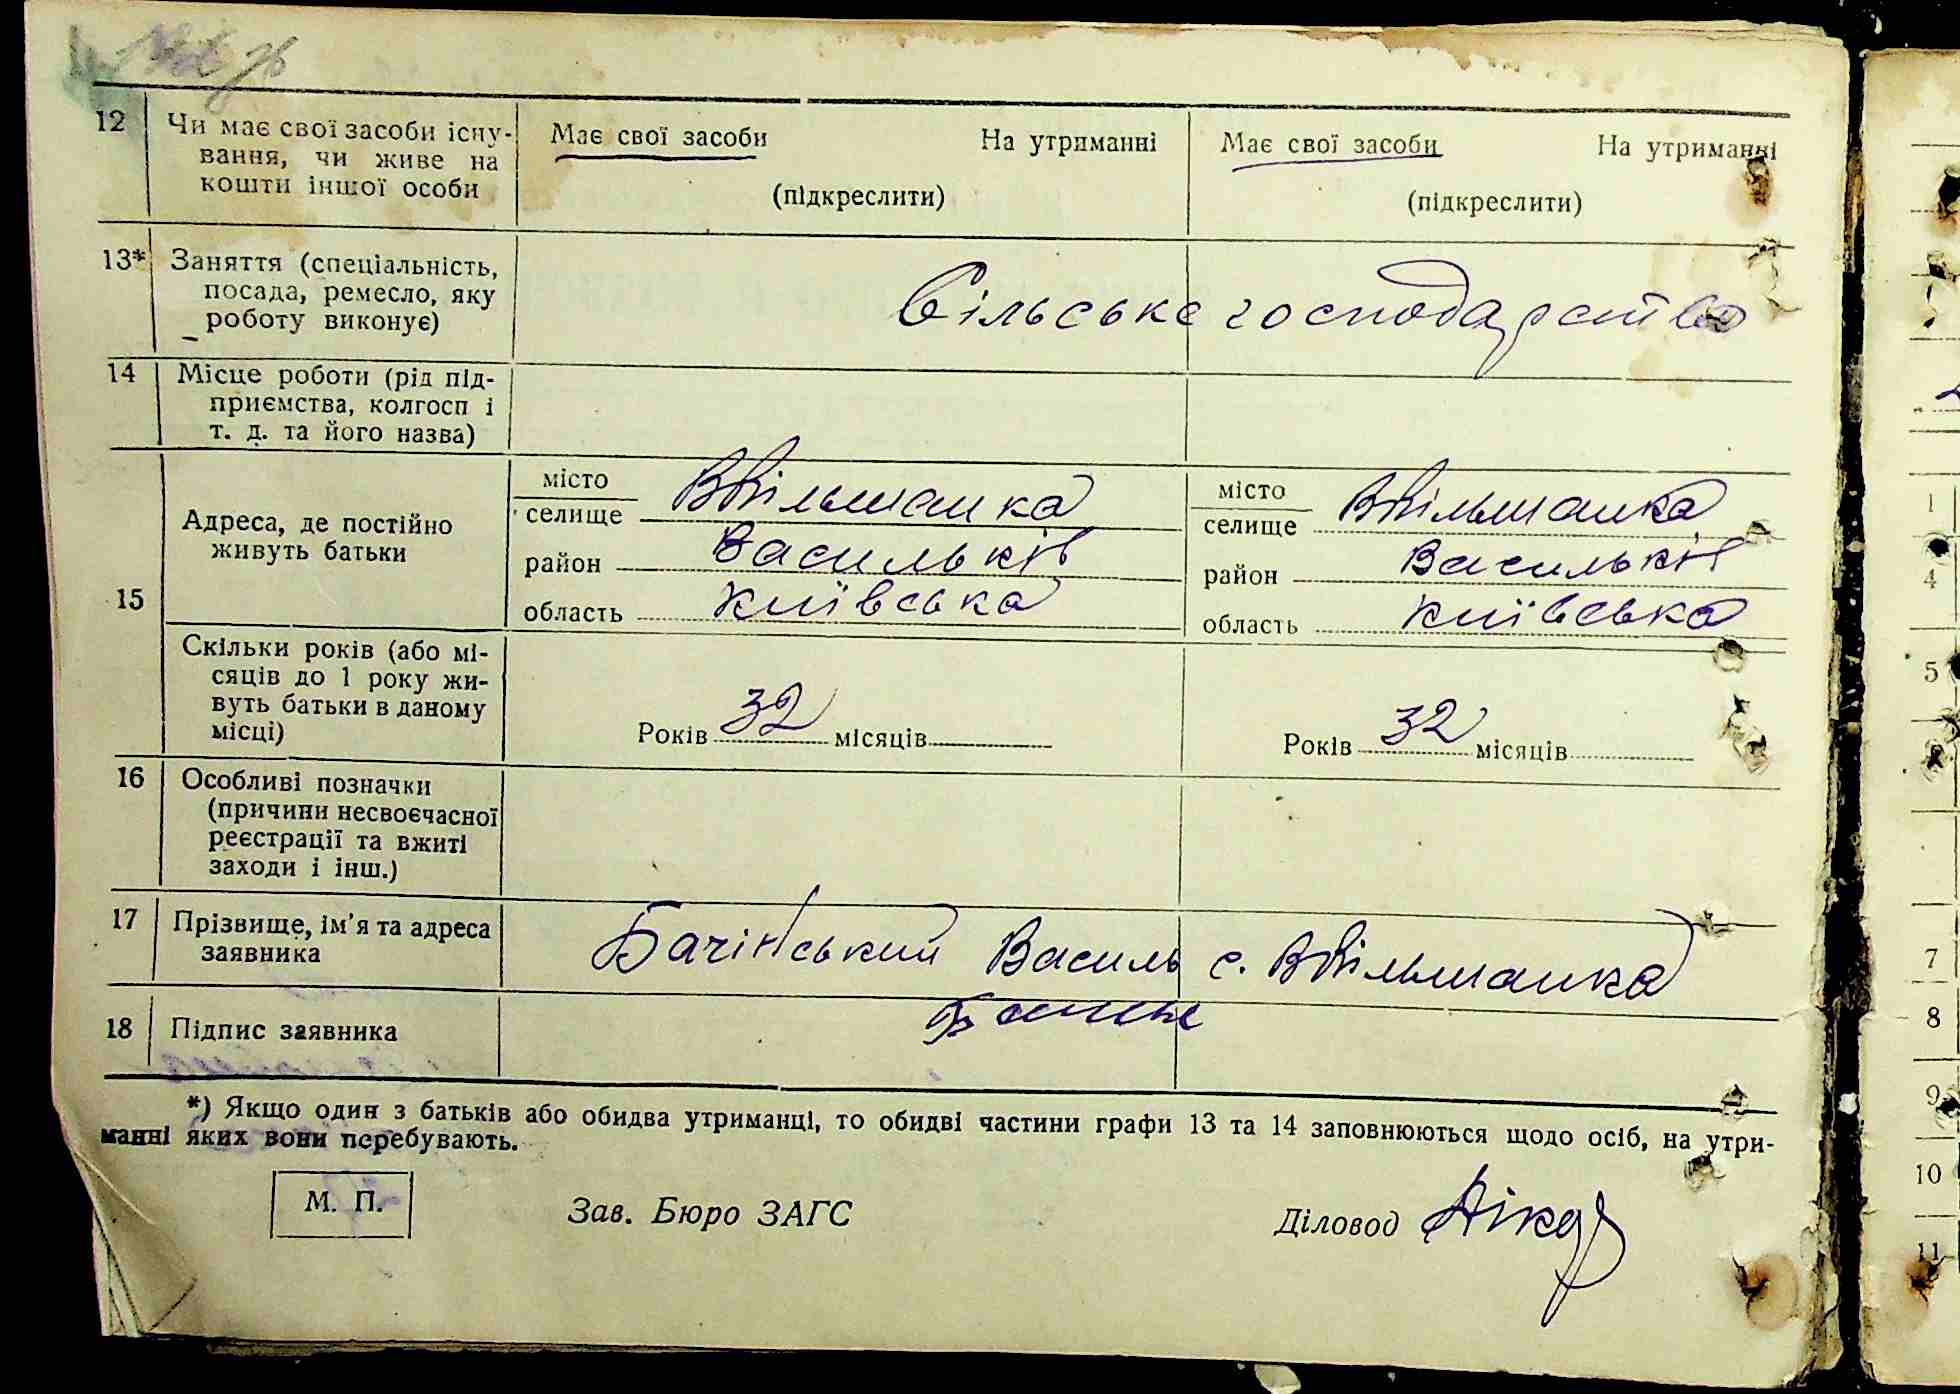 12 Чи має свої засоби існу-
вання, чи живе на
кошти іншої особи
Має свої засоби На утриманні
(підкреслити)
Має свої засоби На утриманні
(підкреслити)
13* Заняття (спеціальність,
посада, ремесло, яку
роботу виконує)
Сільське господарство
14 Місце роботи (рід під-
приємства, колгосп і
т. д. та його назва)
15
Адреса, де постійно
живуть батьки
місто
селище ВВільшанка
район Васильків
область Київська
місто
селище ВВільшанка
район Васильків
область Київська
Скільки років (або мі-
сяців до 1 року жи-
вуть батьки в даному
місці)
Років 32 місяців
Років 32 місяців
16 Особливі позначки
(причини несвоєчасної
реєстрації та вжиті
заходи і інш.)
17 Прізвище, ім'я та адреса
заявника
Бачінський Василь с. ВВільшанка
18 Підпис заявника
*) Якщо один з батьків або обидва утриманці, то обидві частини графи 13 та 14 заповнюються щодо осіб, на утри-
манні яких вони перебувають.
М. П.
Зав. Бюро ЗАГС
Діловод
1
4
5
7
8
9
10
11